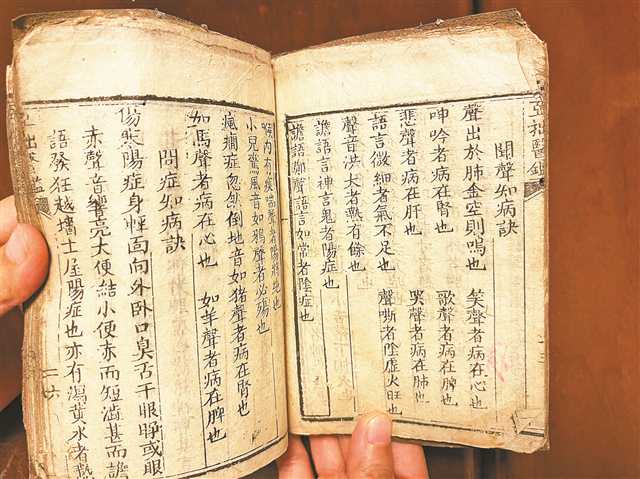 聞聲知病訣
聲出於肺金空則嗚也 笑聲者病在心也
呻吟者病在腎也 歌聲者病在脾也
悲聲者病在肝也 哭聲者病在肺也
語言微細者氣不足也 聲嘶者陰虛火旺也
聲音洪大者熱有餘也
譫語言神言鬼者陽症也
譫語鄭聲語言如常者陰症也
喉內有痰
小兒驚風音如鴉聲者必殤也
瘋癇症忽然倒地音如猪聲者病在腎也
如馬聲者病在心也 如羊聲者病在脾也
問症知病訣
傷寒陽症身輕面向外卧口臭舌干眼睜或眼
赤聲音響亮大便結小便赤而短澁甚而譫
語發狂越墻土屋陽症也亦有瀉黃水者熱
二六
亞拙醫鑑